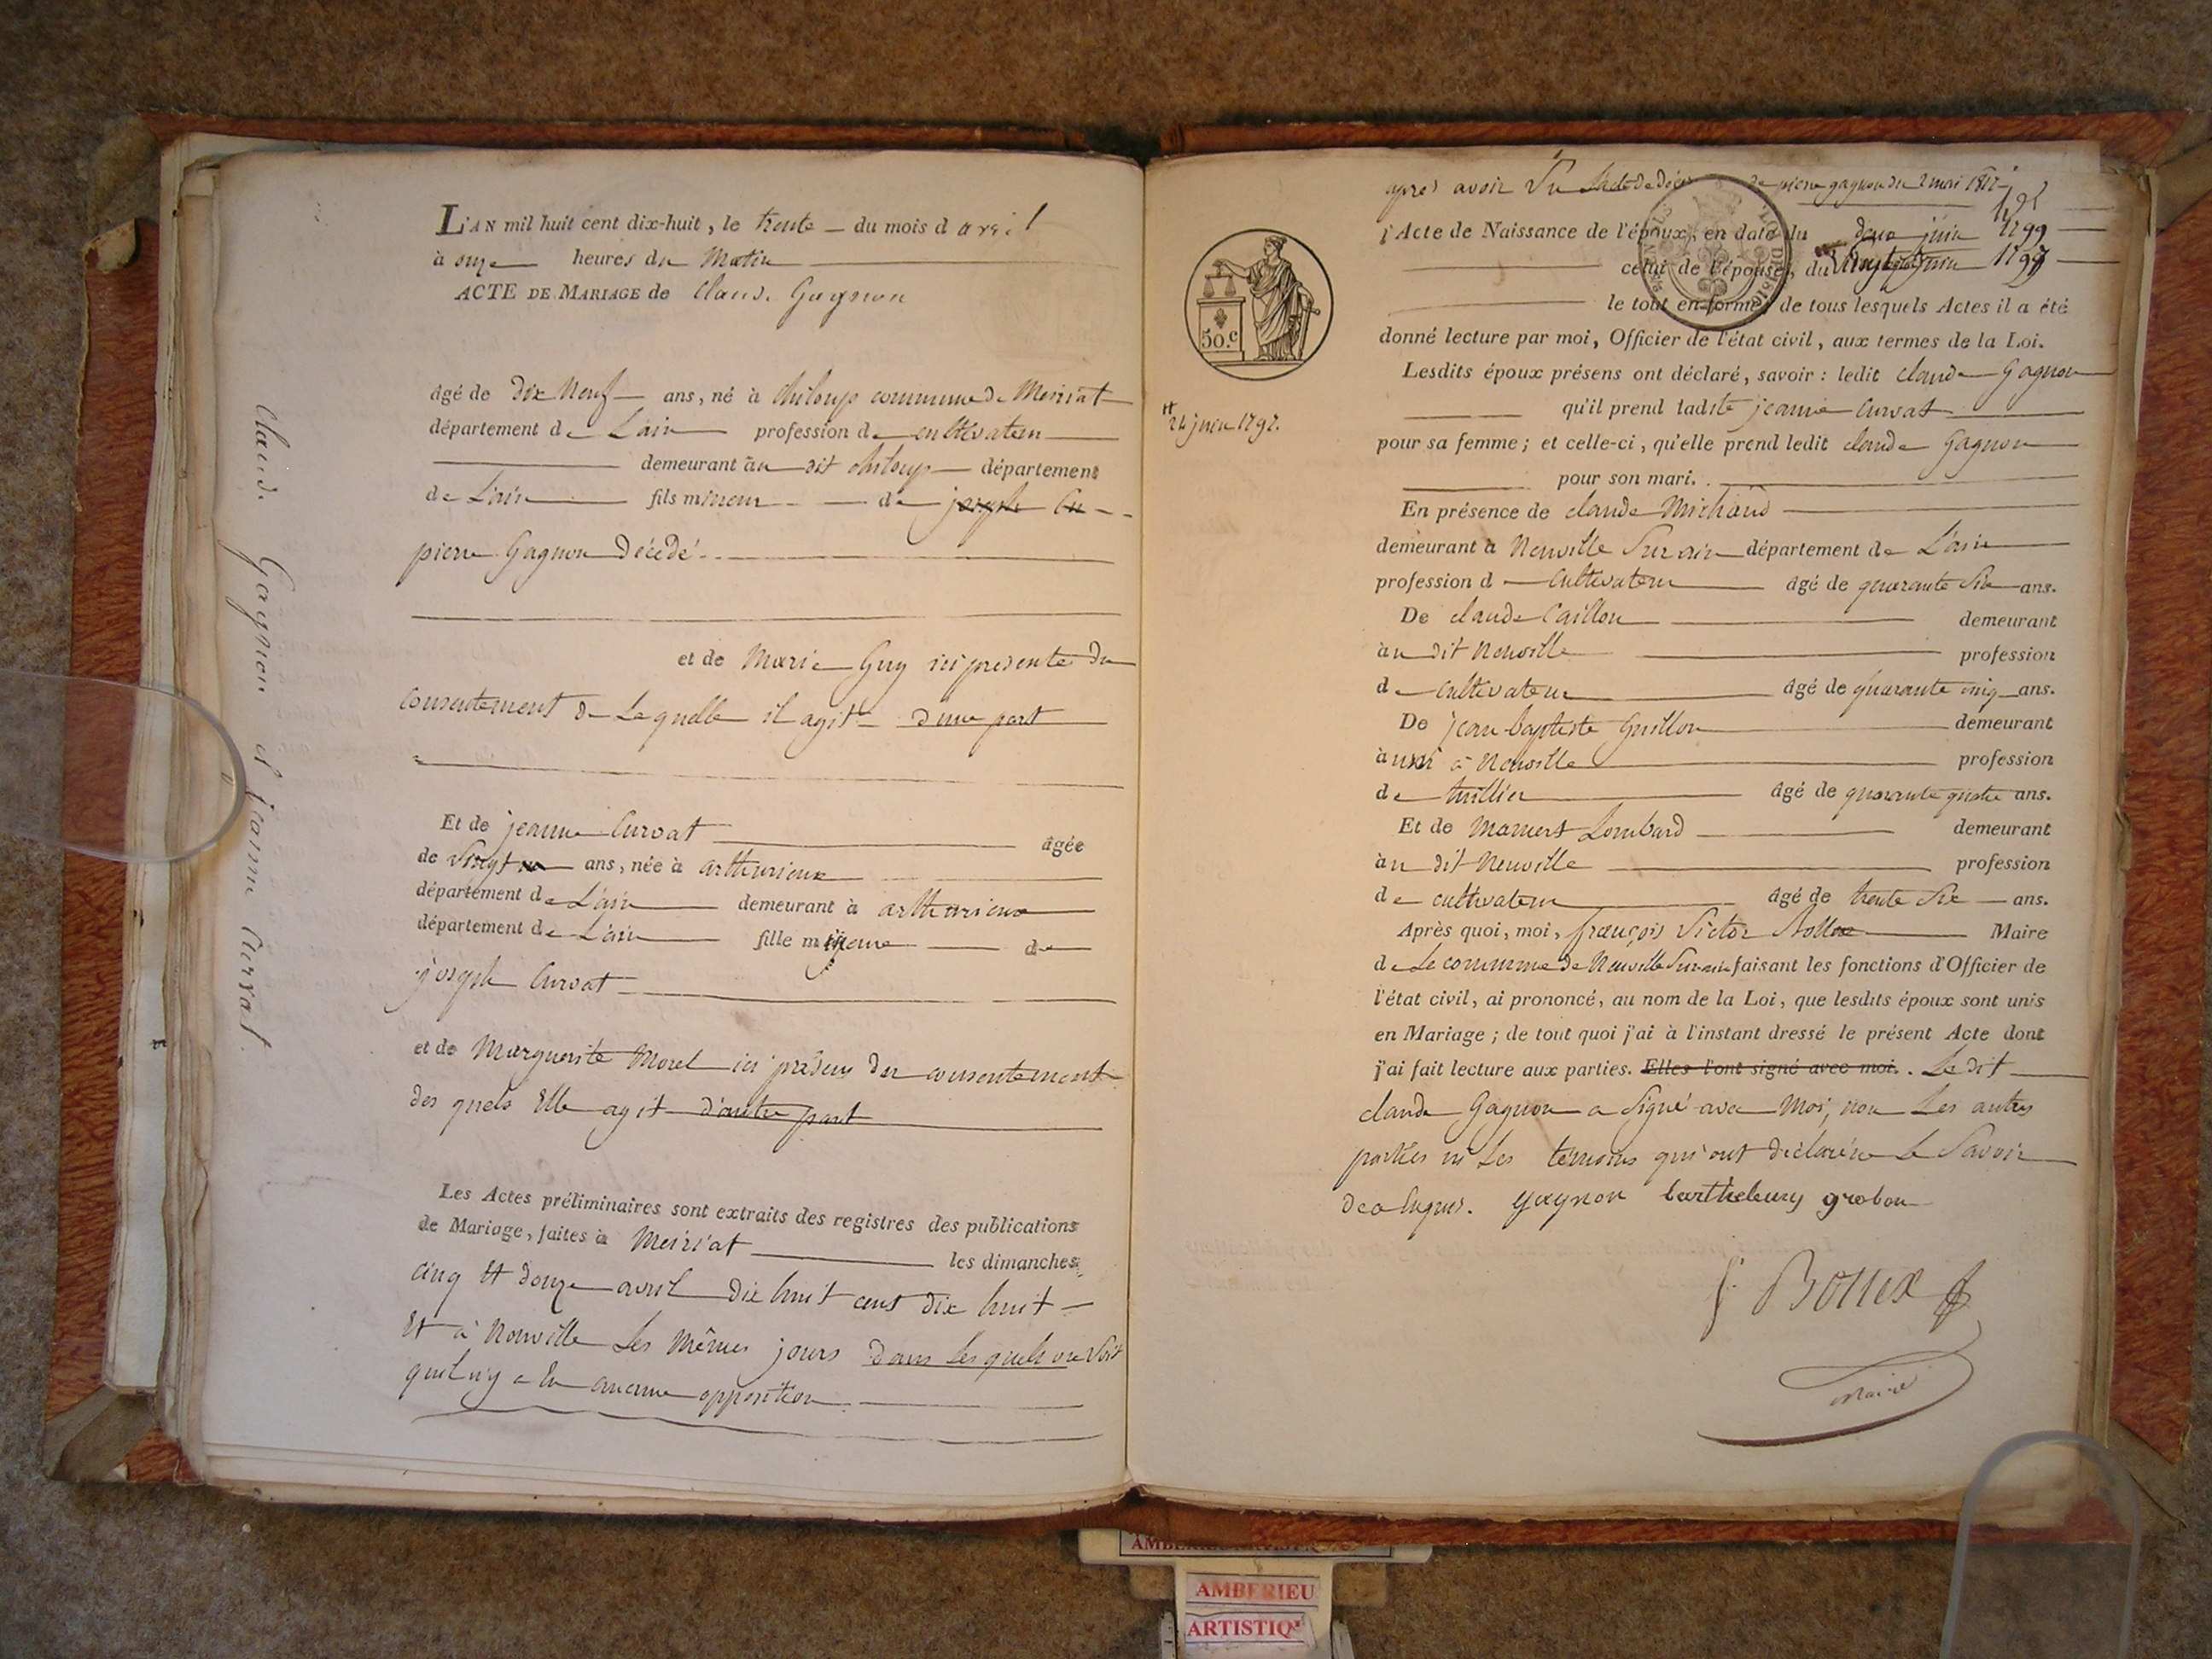 Claude Gagnon et jeanne Curvat.
L'AN mil huit cent dix-huit, le trente du mois d avril
à onze heures du Matin
ACTE DE MARIAGE de Claude Gagnon
âgé de dix Neuf ans, né à chiloup commune de Meiriat
département de L'ain profession de cultivateur
demeurant au dit chiloup département
de L'ain fils mineur de joseph Cu
pierre Gagnon Décédé
et de Marie Guy ici presente du
consentement de Laquelle il agit d'une part
Et de jeanne Curvat âgée
de vingt ans, née à arthurieux
département de L'ain demeurant à arthurieux
département de L'ain fille mineure de
joseph Curvat
et de Marguerite Morel ici présens du consentement
des quels Elle agit d'autre part
Les Actes préliminaires sont extraits des registres des publications
de Mariage, faites à Meiriat les dimanches
cinq Et douze avril dix huit cent dix huit
Et à Neuville Les Mêmes jours dans Les quels on voit
quil n'y a Eu aucune opposition
après avoir Vu de pierre gagnon du 2 mai 1812
l'Acte de Naissance de l'époux, en date du deux juin 1799
celui de l'épouse, du 1797
le tout en forme; de tous lesquels Actes il a été
donné lecture par moi, Officier de l'état civil, aux termes de la Loi.
50.c
24 juin 1797.
Lesdits époux présens ont déclaré, savoir : ledit claude Gagnon
qu'il prend ladite jeanne Curvat
pour sa femme; et celle-ci, qu'elle prend ledit claude Gagnon
pour son mari.
En présence de claude Michaud
demeurant à Neuville Sur ain département de L'ain
profession d cultivateur âgé de quarante Six ans.
De claude Caillon demeurant
au dit Neuville profession
de cultivateur âgé de quarante cinq ans.
De jean baptiste Guillon demeurant
aussi à Neuville profession
de tuillier âgé de quarante quatre ans.
Et de Mamert Lombard demeurant
au dit Neuville profession
de cultivateur âgé de trente Six ans.
Après quoi, moi, françois Victor Maire
de La commune de Neuville Sur ain faisant les fonctions d'Officier de
l'état civil, ai prononcé, au nom de la Loi, que lesdits époux sont unis
en Mariage; de tout quoi j'ai à l'instant dressé le présent Acte dont
j'ai fait lecture aux parties. Elles l'ont signé avec moi. Le dit
claude Gagnon a Signé avec Moi, non Les autres
parties ni Les témoins qui ont déclaré ne Le Savoir
de ce Enquis. gagnon barthelemy grobon
Maire
AMBERIEU